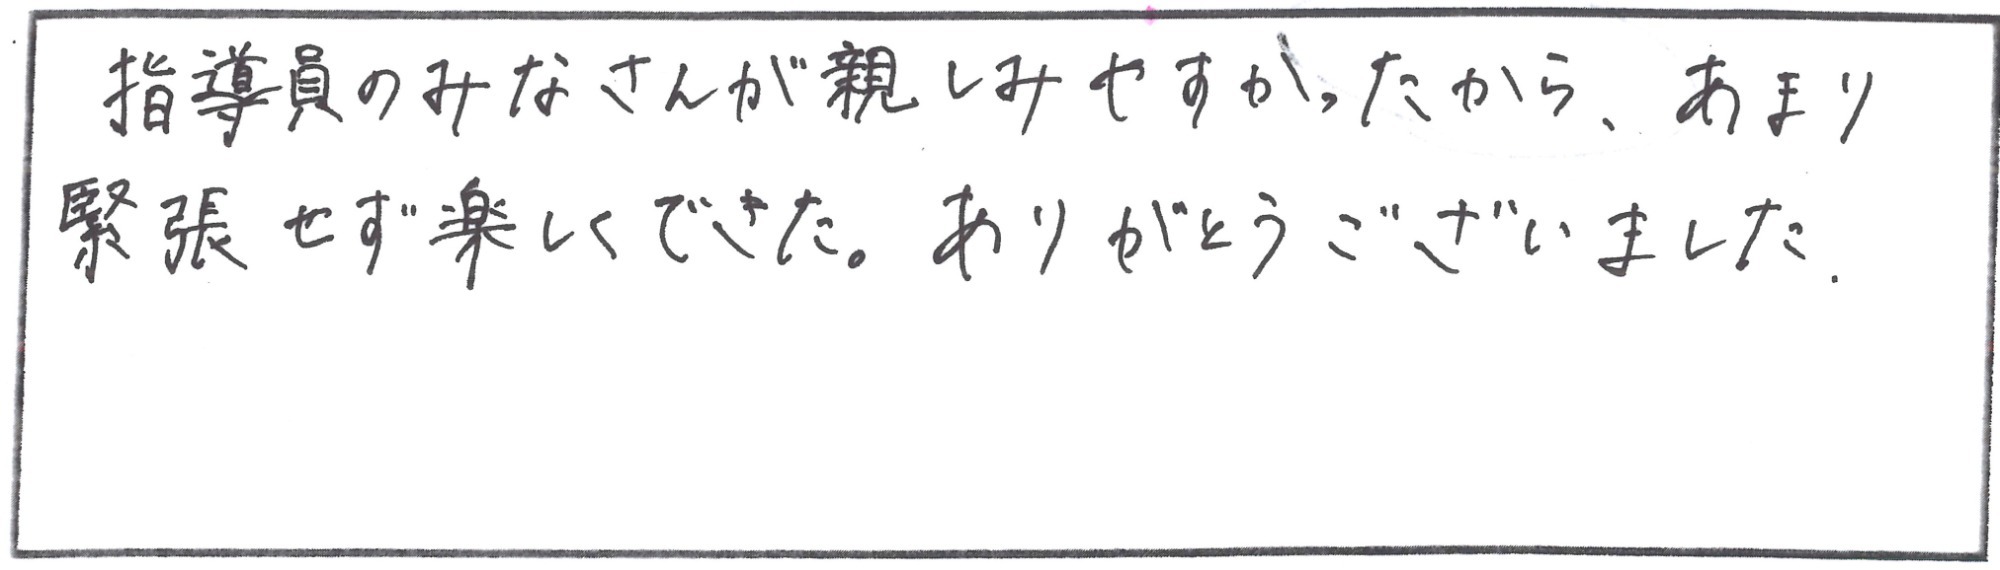 指導員のみなさんが親しみやすかったから、あまり
緊張せず楽しくできた。ありがとうございました.